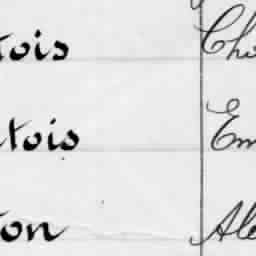 tois Cho
tois Em
on Ale